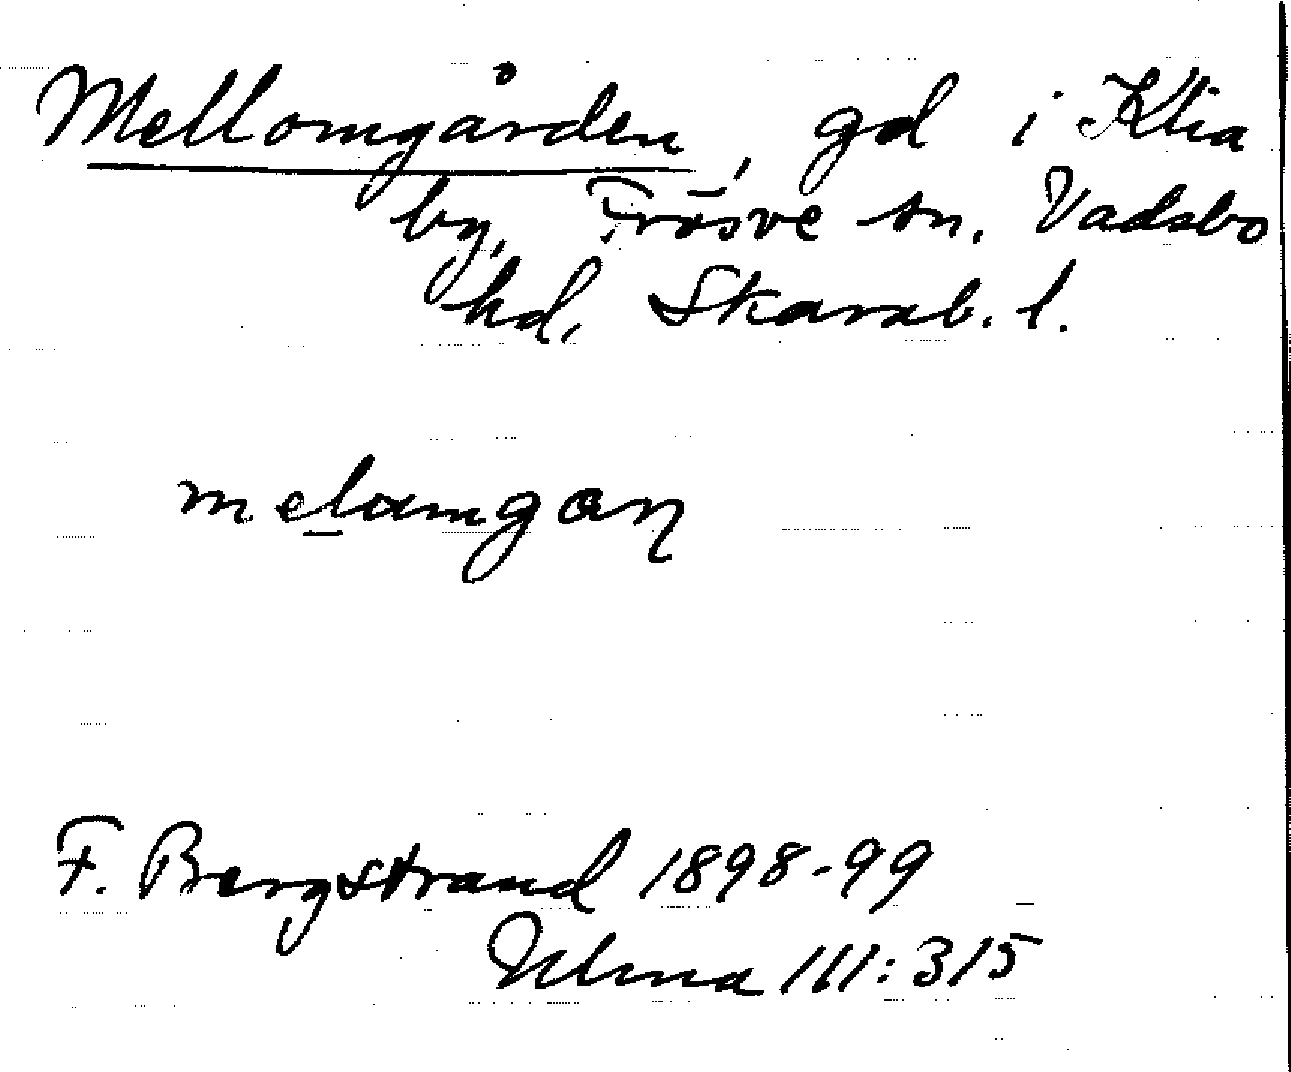 Mellomgården, gd i Klia
by, Frösve sn. Vadsbo
hd. Skarab. l.
melamgaɳ
F. Bergstrand 1898-99
Ulma 111:315